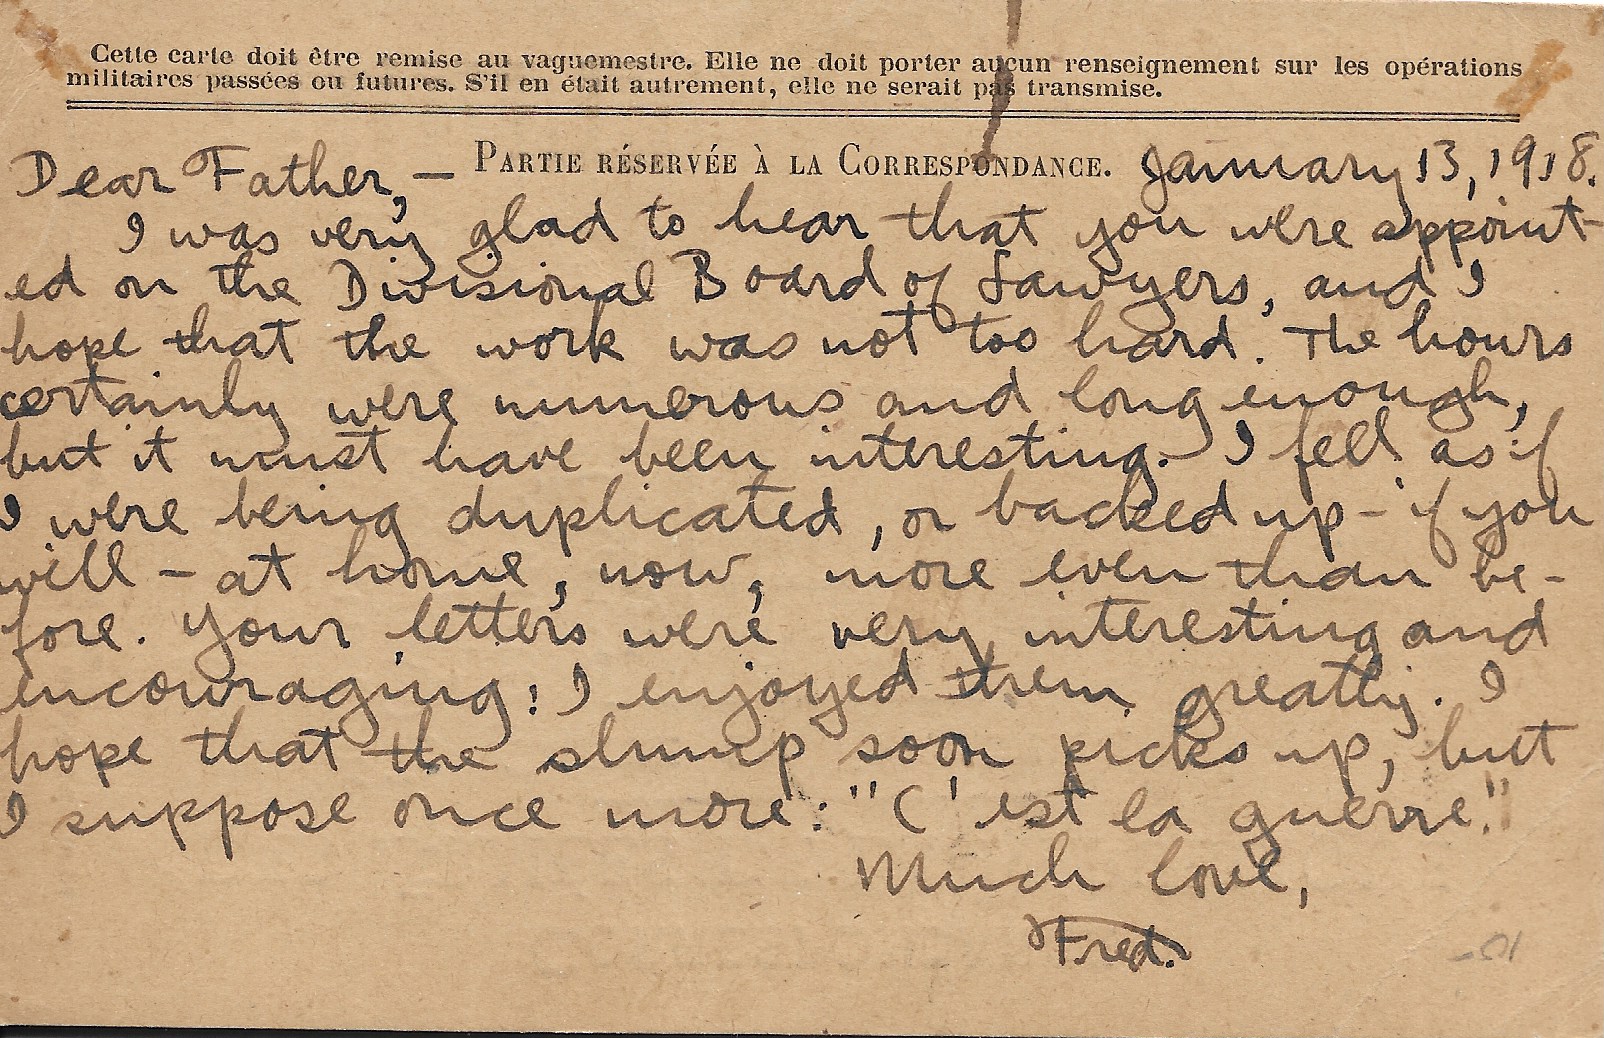 Cette carte doit être remise au vaguemestre. Elle ne doit porter aucun renseignement sur les opérations
militaires passées ou futures. S'il en était autrement, elle ne serait pas transmise.
Dear Father, — PARTIE RÉSERVÉE À LA CORRESPONDANCE. January 13, 1918.
I was very glad to hear that you were appoint-
ed on the Divisional Board of Lawyers, and I
hope that the work was not too hard. The hours
certainly were numerous and long enough,
but it must have been interesting. I feel as if
I were being duplicated, or backed up - if you
will - at home, now, more even than be-
fore. Your letters were very interesting and
encouraging: I enjoyed them greatly. I
hope that the slump soon picks up, but
I suppose once more: "C'est la guerre."
Much love,
Fred.